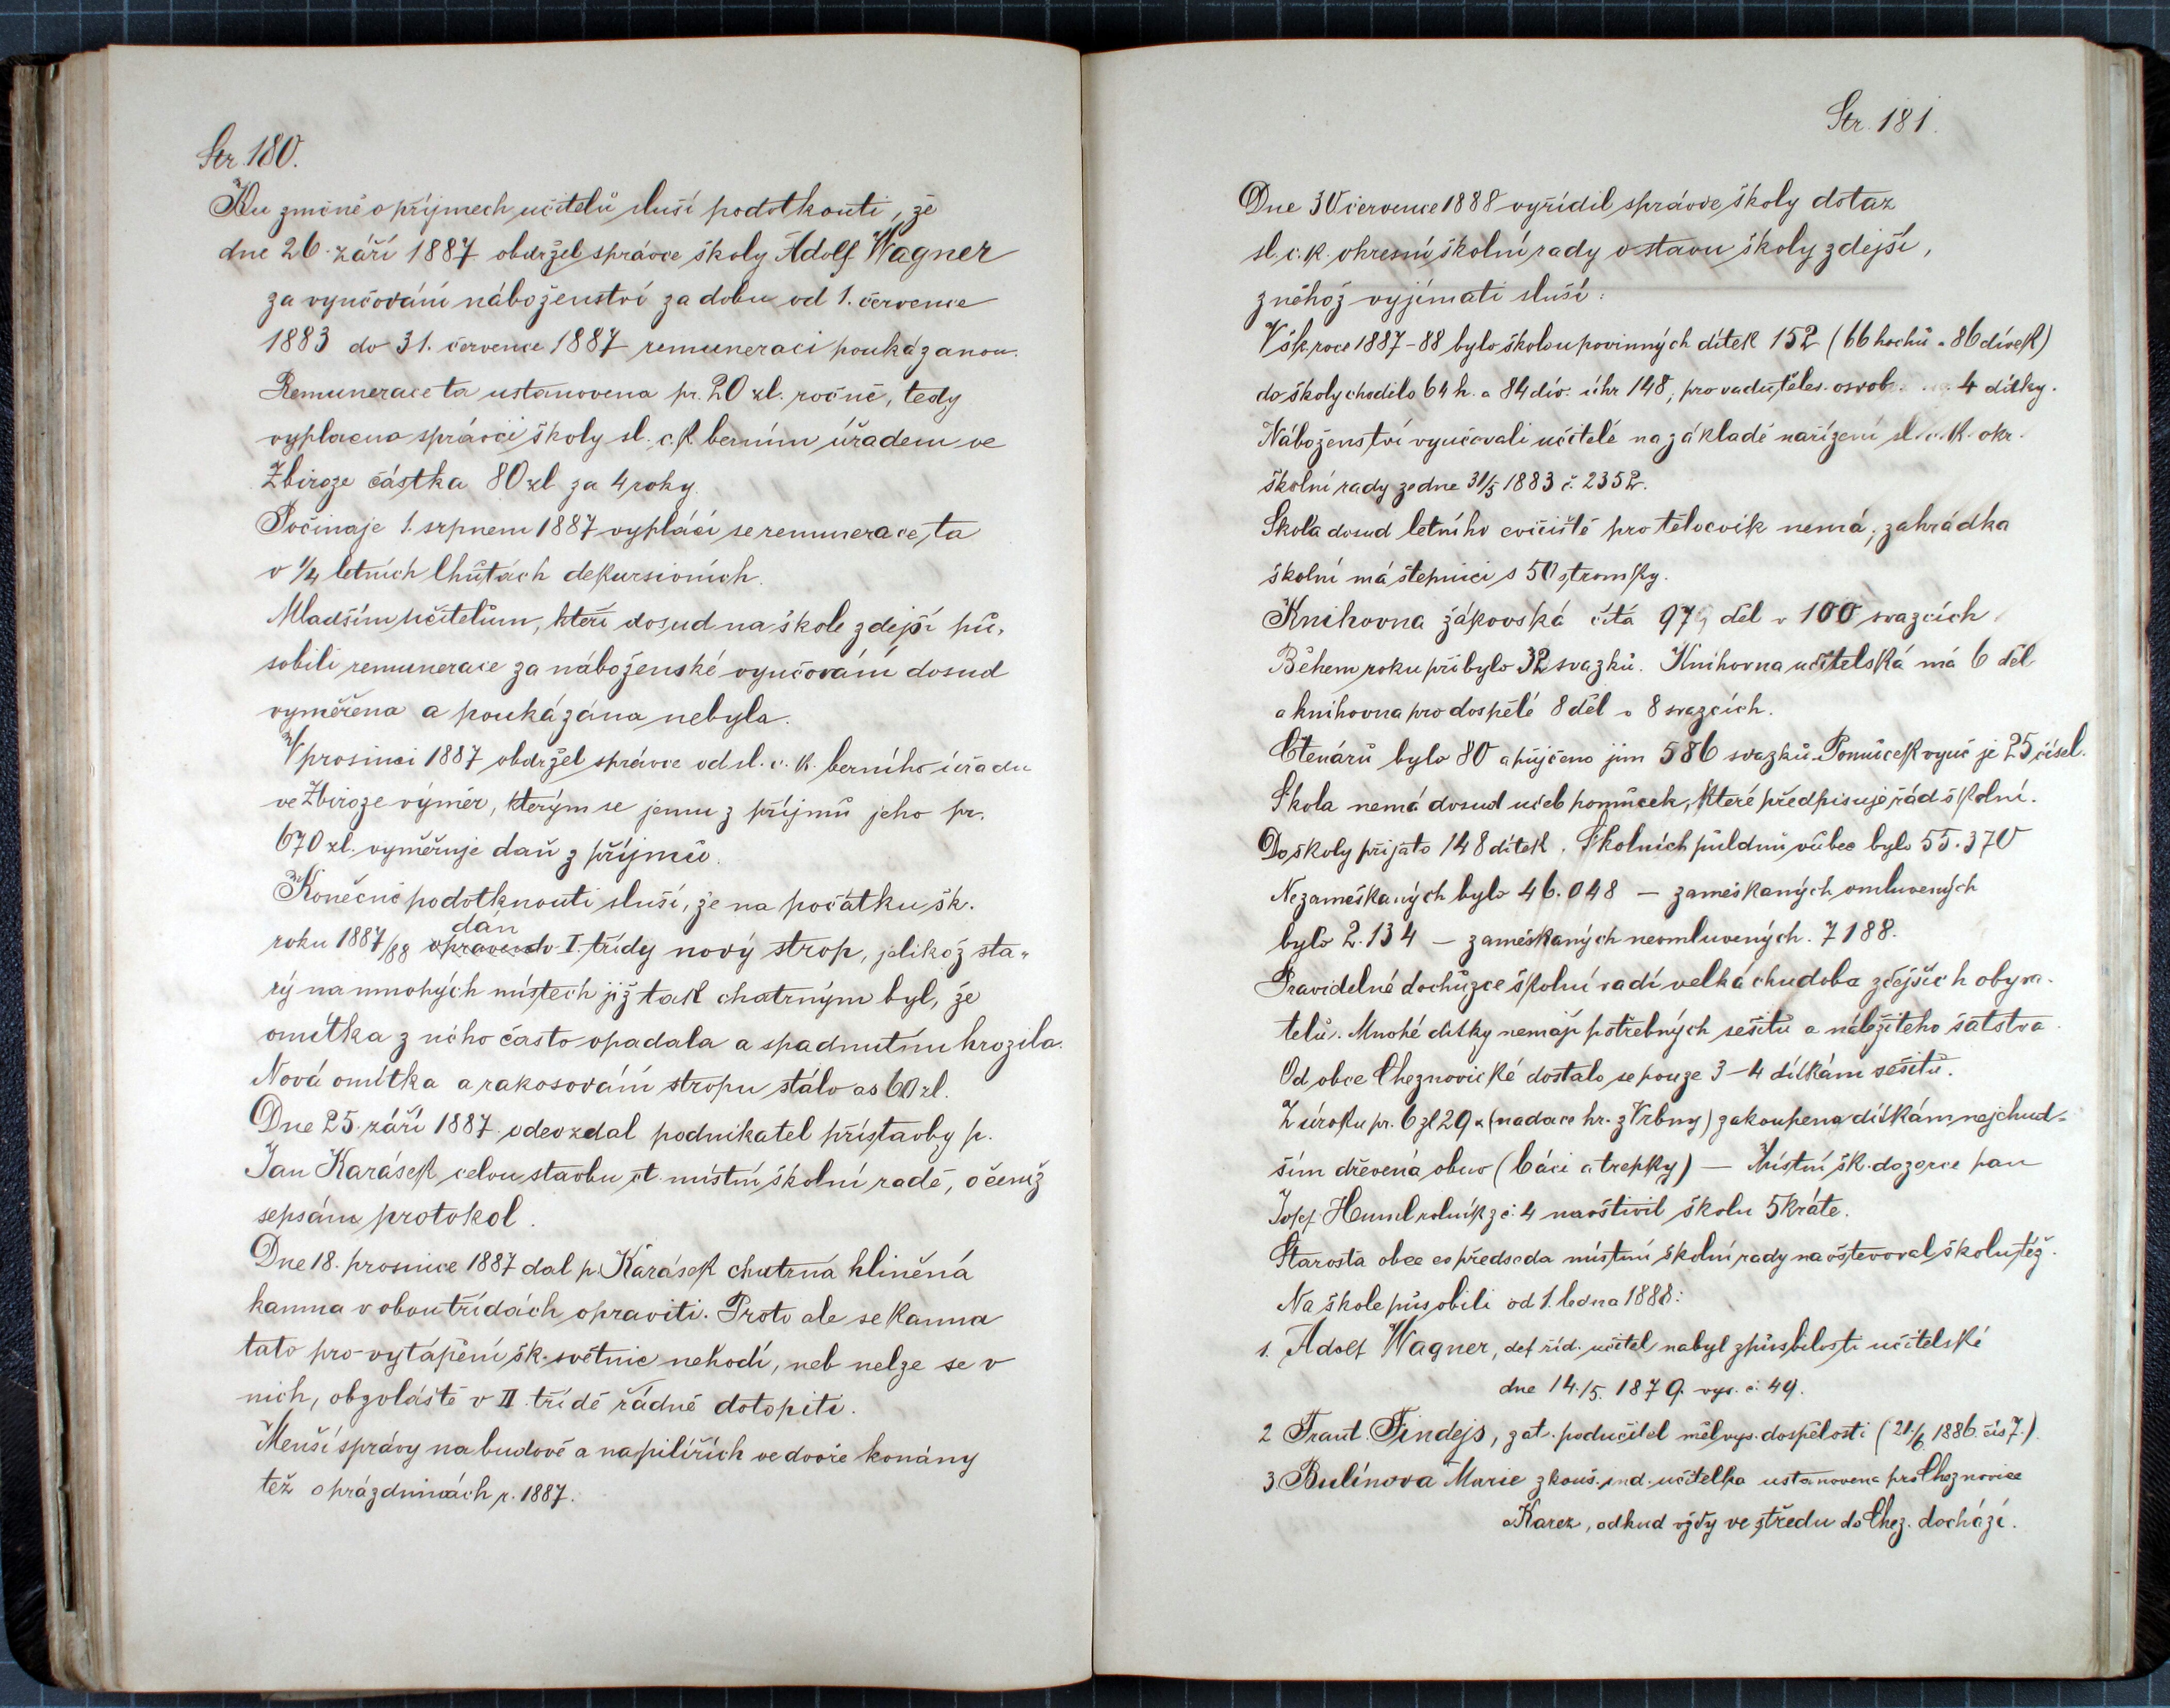 Str. 180.
Ku zmíně o příjmech učitelů sluší podotknouti, že
dne 26. září 1887 obdržel správce školy Adolf Wagner
za vyučování náboženství za dobu od 1. července
1883 do 31. července 1887 remuneraci poukázanou.
Remunerace ta ustanovena pr. 20 zl. ročně, tedy
vyplacena správci školy sl. c. k. berním úřadem ve
Zbiroze částka 80 zl za 4 roky.
Počínaje 1. srpnem 1887 vyplácí se remunerace ta
v 1/4 letních lhůtách dekursivních.
Mladším učitelům, kteří dosud na škole zdejší pů-
sobili remunerace za náboženské vyučování dosud
vyměřena a poukázána nebyla.
V prosinci 1887 obdržel správce od sl. c. k. berního úřadu
ve Zbiroze výměr, kterým se jemu z příjmů jeho pr.
670 zl. vyměřuje daň z příjmů.
Konečně podotknouti sluší, že na počátku šk.
dán
roku 1887/88 opraven do I. třídy nový strop, jelikož sta-
rý na mnohých místech již tak chatrným byl, že
omítka z něho často opadala a spadnutím hrozila.
Nová omítka a rakosování stropu stálo as 60 zl.
Dne 25. září 1887. odevzdal podnikatel přístavby p.
Jan Karásek celou stavbu ct. místní školní radě, o čemž
sepsán protokol.
Dne 18. prosince 1887 dal p. Karásek chatrná hliněná
kamna v obou třídách opraviti. Proto ale se kamna
tato pro vytápění šk. světnic nehodí, neb nelze se v
nich, obzvláště v II. třídě řádně dotopiti.
Menší správy na budově a na pilířích ve dvoře konány
též o prázdninách r. 1887.
Str. 181.
Dne 30 července 1888 vyřídil správce školy dotaz
sl. c. k. okresní školní rady o stavu školy zdejší,
z něhož vyjímati sluší:
V šk. roce 1887-88 bylo školou povinných dítek 152 (66 hochů a 86 dívek)
do školy chodilo 64 h. a 84 dív. úhr 148, pro vadu těles. osvob. 4 dítky.
Náboženství vyučovali učitelé na základě nařízení sl. c. k. okr.
školní rady ze dne 31/5 1883 č. 2352.
Škola dosud letního cvičiště pro tělocvik nemá; zahrádka
školní má štěpnici s 50 stromky.
Knihovna žákovská čítá 97 děl v 100 svazcích
Během roku přibylo 32 svazků. Knihovna učitelská má 6 děl
a knihovna pro dospělé 8 děl v 8 svazcích.
Čtenářů bylo 80 a půjčeno jim 586 svazků. Pomůcek vyuč je 25 čísel.
Škola nemá dosud učeb pomůcek, které předpisuje řád školní.
Do školy přijato 148 dítek. Školních půldnů vůbec bylo 55.370
Nezameškaných bylo 46.048 — zameškaných omluvených
bylo 2.134 — zameškaných neomluvených. 7188.
Pravidelné docházce školní vadí velká chudoba zdejších obyva-
telů. Mnohé dítky nemají potřebných sešitů a náležitého šatstva.
Od obce Cheznovické dostalo se pouze 3-4 dítkám sešitů.
Z úroku pr. 6 zl 29 x (nadace hr. z Vrbny) zakoupena dítkám nejchud-
ším dřevěná obuv (báci a trepky) — Místní šk. dozorce pan
Josef Huml rolník z č. 4 navštívil školu 5 kráte.
Starosta obce co předseda místní školní rady navštěvoval školu též.
Na škole působili od 1. ledna 1888:
1. Adolf Wagner, def. říd. učitel nabyl způsobilosti učitelské
dne 14./5. 1879. vys. č. 49.
2 Frant. Findejs, zat. podučitel měl vys. dospělosti (21./6 1886. čís 7.).
3. Bulínova Marie zkouš. ind. učitelka ustanovena pro Cheznovice
a Karez, odkud vždy ve středu do Chez. dochází.